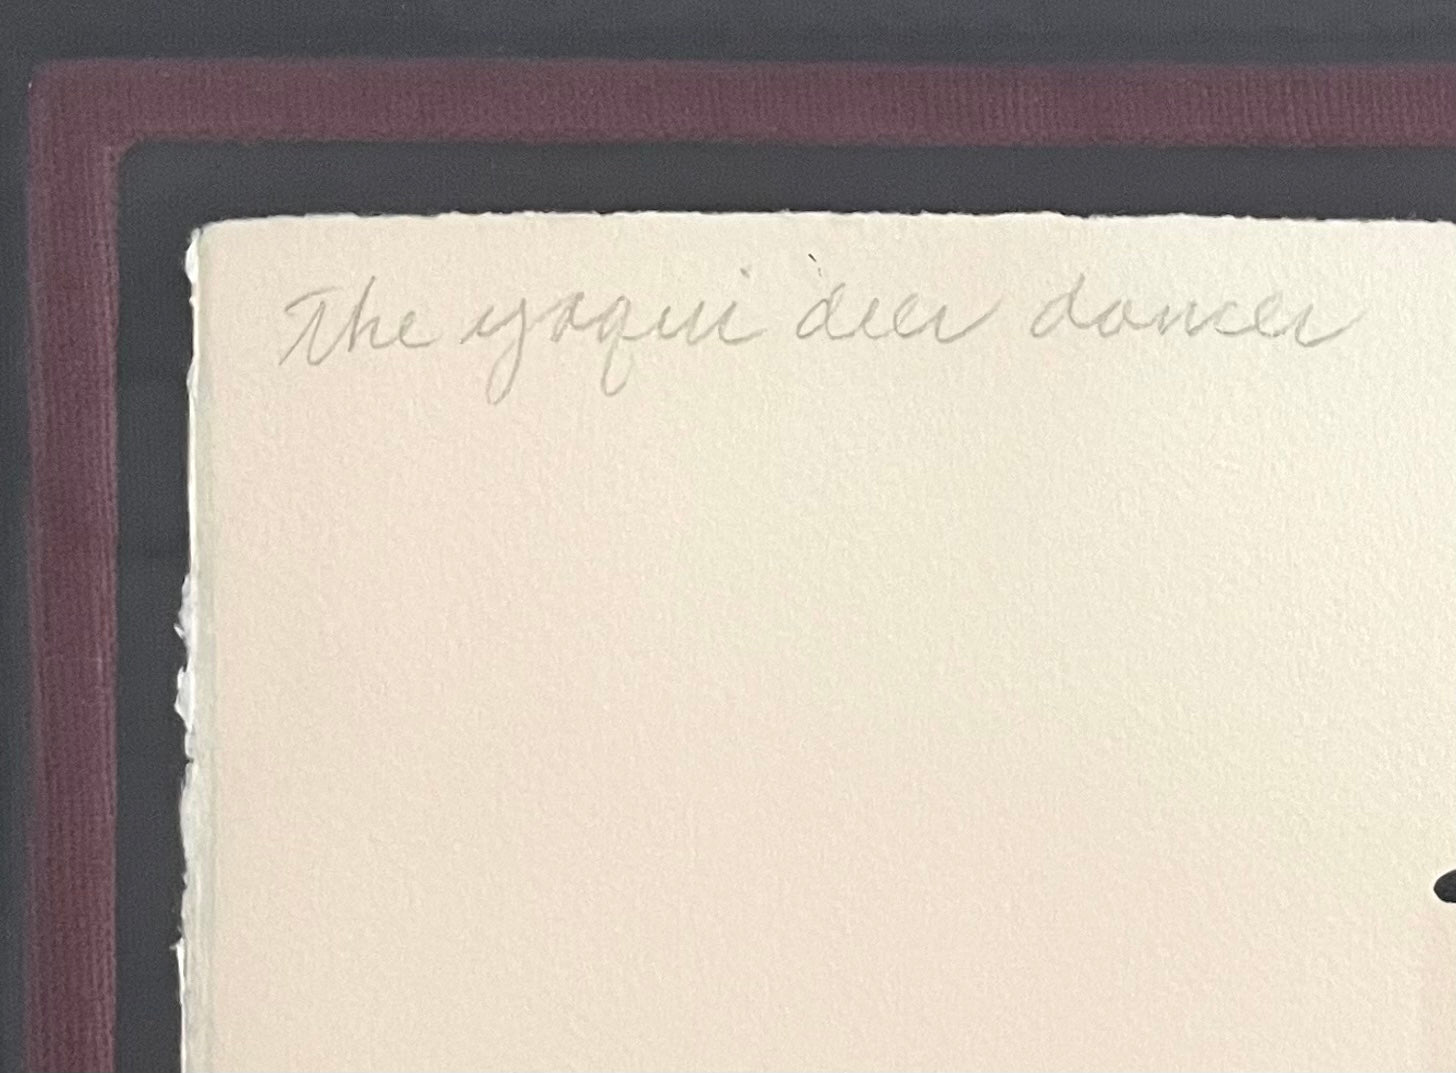 The yaqui deer dancer